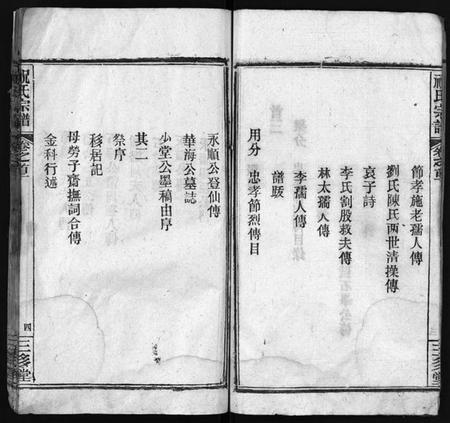 祝氏宗譜
卷之首
三多堂
節孝施老孺人傳
劉氏陳氏兩世清操傳
哀子詩
李氏割股救夫傳
林太孺人傳
李孺人傳
譜跋
忠孝節烈傳目
用分
永順公登仙傳
華海公墓誌
少堂公墨稿由序
其二
祭序
移居記
母勞子齋撫詞合傳
金科行述
祝氏宗譜
卷之首
四
三多堂